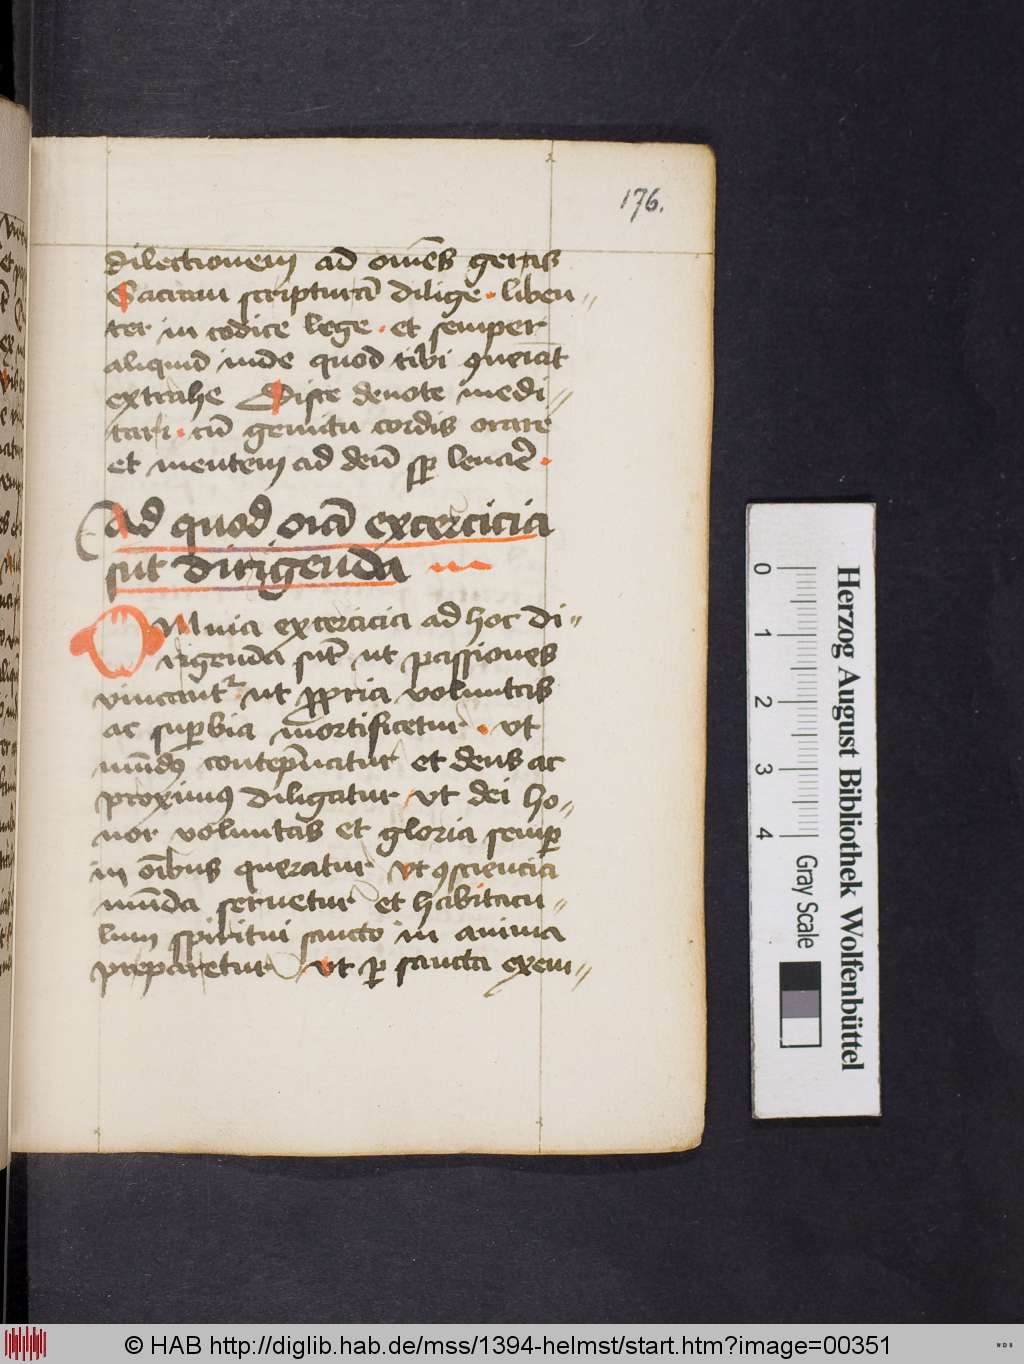 176.
dilectionem ad om̄es geras
Sacram scripturā dilige · liben//
ter in codice lege · et semper
aliquid inde quod tibi ꝯueniat
extrahe Disce deuote medi//
tari · cū gemitu cordis orare
et mentem ad deū sꝑ leuare ·
Ad quod oīa exercicia
sūt dirigenda
Omnia exercicia ad hoc di//
rigenda sūt ut passiones
vincantᷣ ut ꝓpria voluntas
ac suꝑbia mortificetur · vt
mūdꝰ contepnatur et deus ac
proximꝰ diligatur vt dei ho//
nor voluntas et gloria semꝑ
in oībus queratur vt ꝯsciencia
mūda seruetur et habitacu//
lum spiritui sancto in anima
preparetur vt ꝑ sancta exem//
0 1 2 3 4 Gray Scale
Herzog August Bibliothek Wolfenbüttel
© HAB http://diglib.hab.de/mss/1394-helmst/start.htm?image=00351